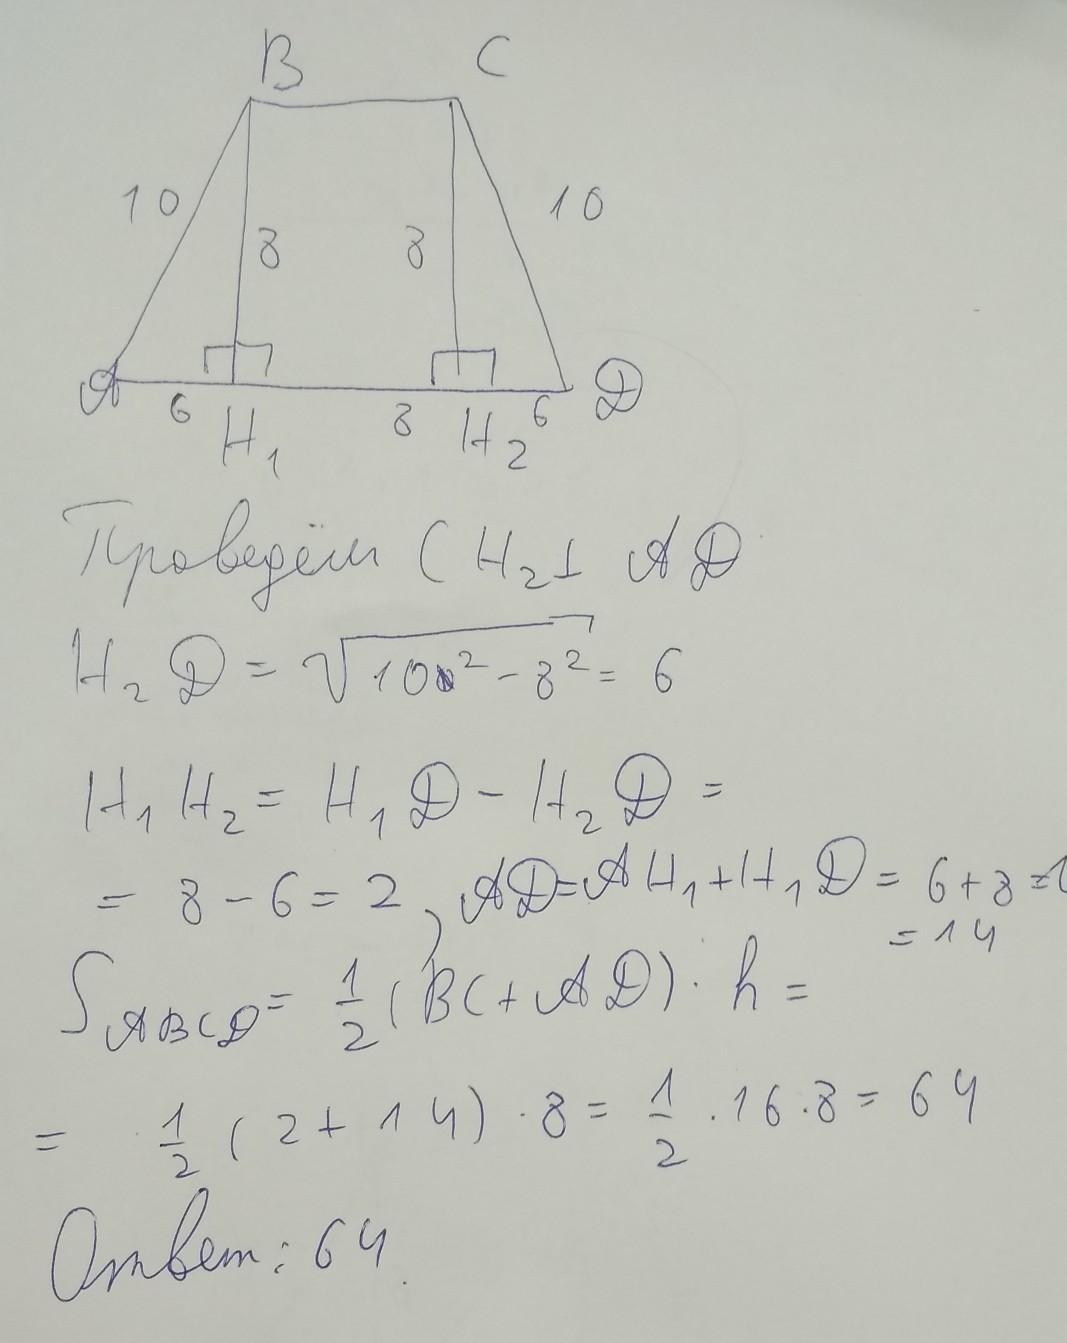 B C
10 8 8 10
A 6 H₁ 8 H₂ 6 D
Проведём CH₂ ⊥ AD
H₂D = √10² - 8² = 6
H₁H₂ = H₁D - H₂D =
= 8 - 6 = 2, AD = AH₁ + H₁D = 6 + 8 =
= 14
S ABCD = 1/2 (BC + AD) · h =
= 1/2 (2 + 14) · 8 = 1/2 · 16 · 8 = 64
Ответ: 64.